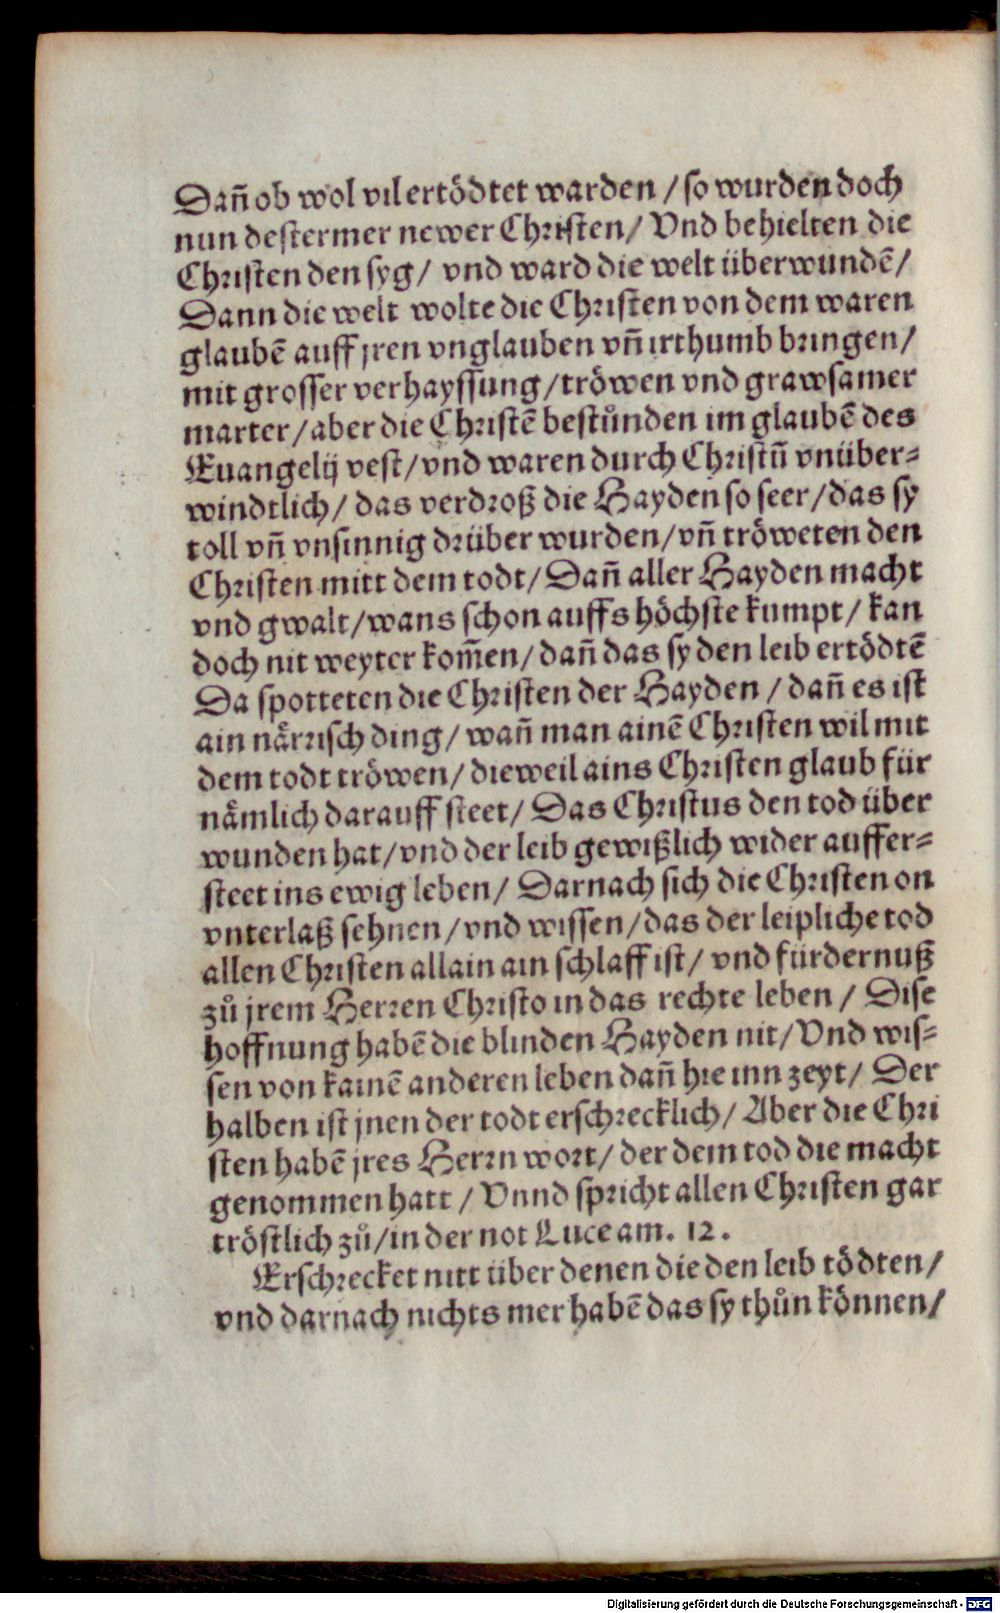 Dañ ob wol vil ertödtet warden / so wurden doch
nun destermer newer Christen / Vnd behielten die
Christen den syg / vnd ward die welt überwundē /
Dann die welt wolte die Christen von dem waren
glaubē auff jren vnglauben vñ irthumb bringen /
mit grosser verhayssung / tröwen vnd grawsamer
marter / aber die Christē bestůnden im glaubē des
Euangelij vest / vnd waren durch Christū vnüber=
windtlich / das verdroß die Hayden so seer / das sy
toll vñ vnsinnig drüber wurden / vñ tröweten den
Christen mitt dem todt / Dañ aller Hayden macht
vnd gwalt / wans schon auffs höchste kumpt / kan
doch nit weyter kom̄en / dañ das sy den leib ertödtē
Da spotteten die Christen der Hayden / dañ es ist
ain närrisch ding / wañ man ainē Christen wil mit
dem todt tröwen / dieweil ains Christen glaub für
nämlich darauff steet / Das Christus den tod über
wunden hat / vnd der leib gewißlich wider auffer=
steet ins ewig leben / Darnach sich die Christen on
vnterlaß sehnen / vnd wissen / das der leipliche tod
allen Christen allain ain schlaff ist / vnd fürdernuß
zů jrem Herren Christo in das rechte leben / Dise
hoffnung habē die blinden Hayden nit / Vnd wis=
sen von kainē anderen leben dañ hie inn zeyt / Der
halben ist jnen der todt erschrecklich / Aber die Chri
sten habē jres Herrn wort / der dem tod die macht
genommen hatt / Vnnd spricht allen Christen gar
tröstlich zů / in der not Luce am. 12.
Erschrecket nitt über denen die den leib tödten /
vnd darnach nichts mer habē das sy thůn können /
Digitalisierung gefördert durch die Deutsche Forschungsgemeinschaft - DFG